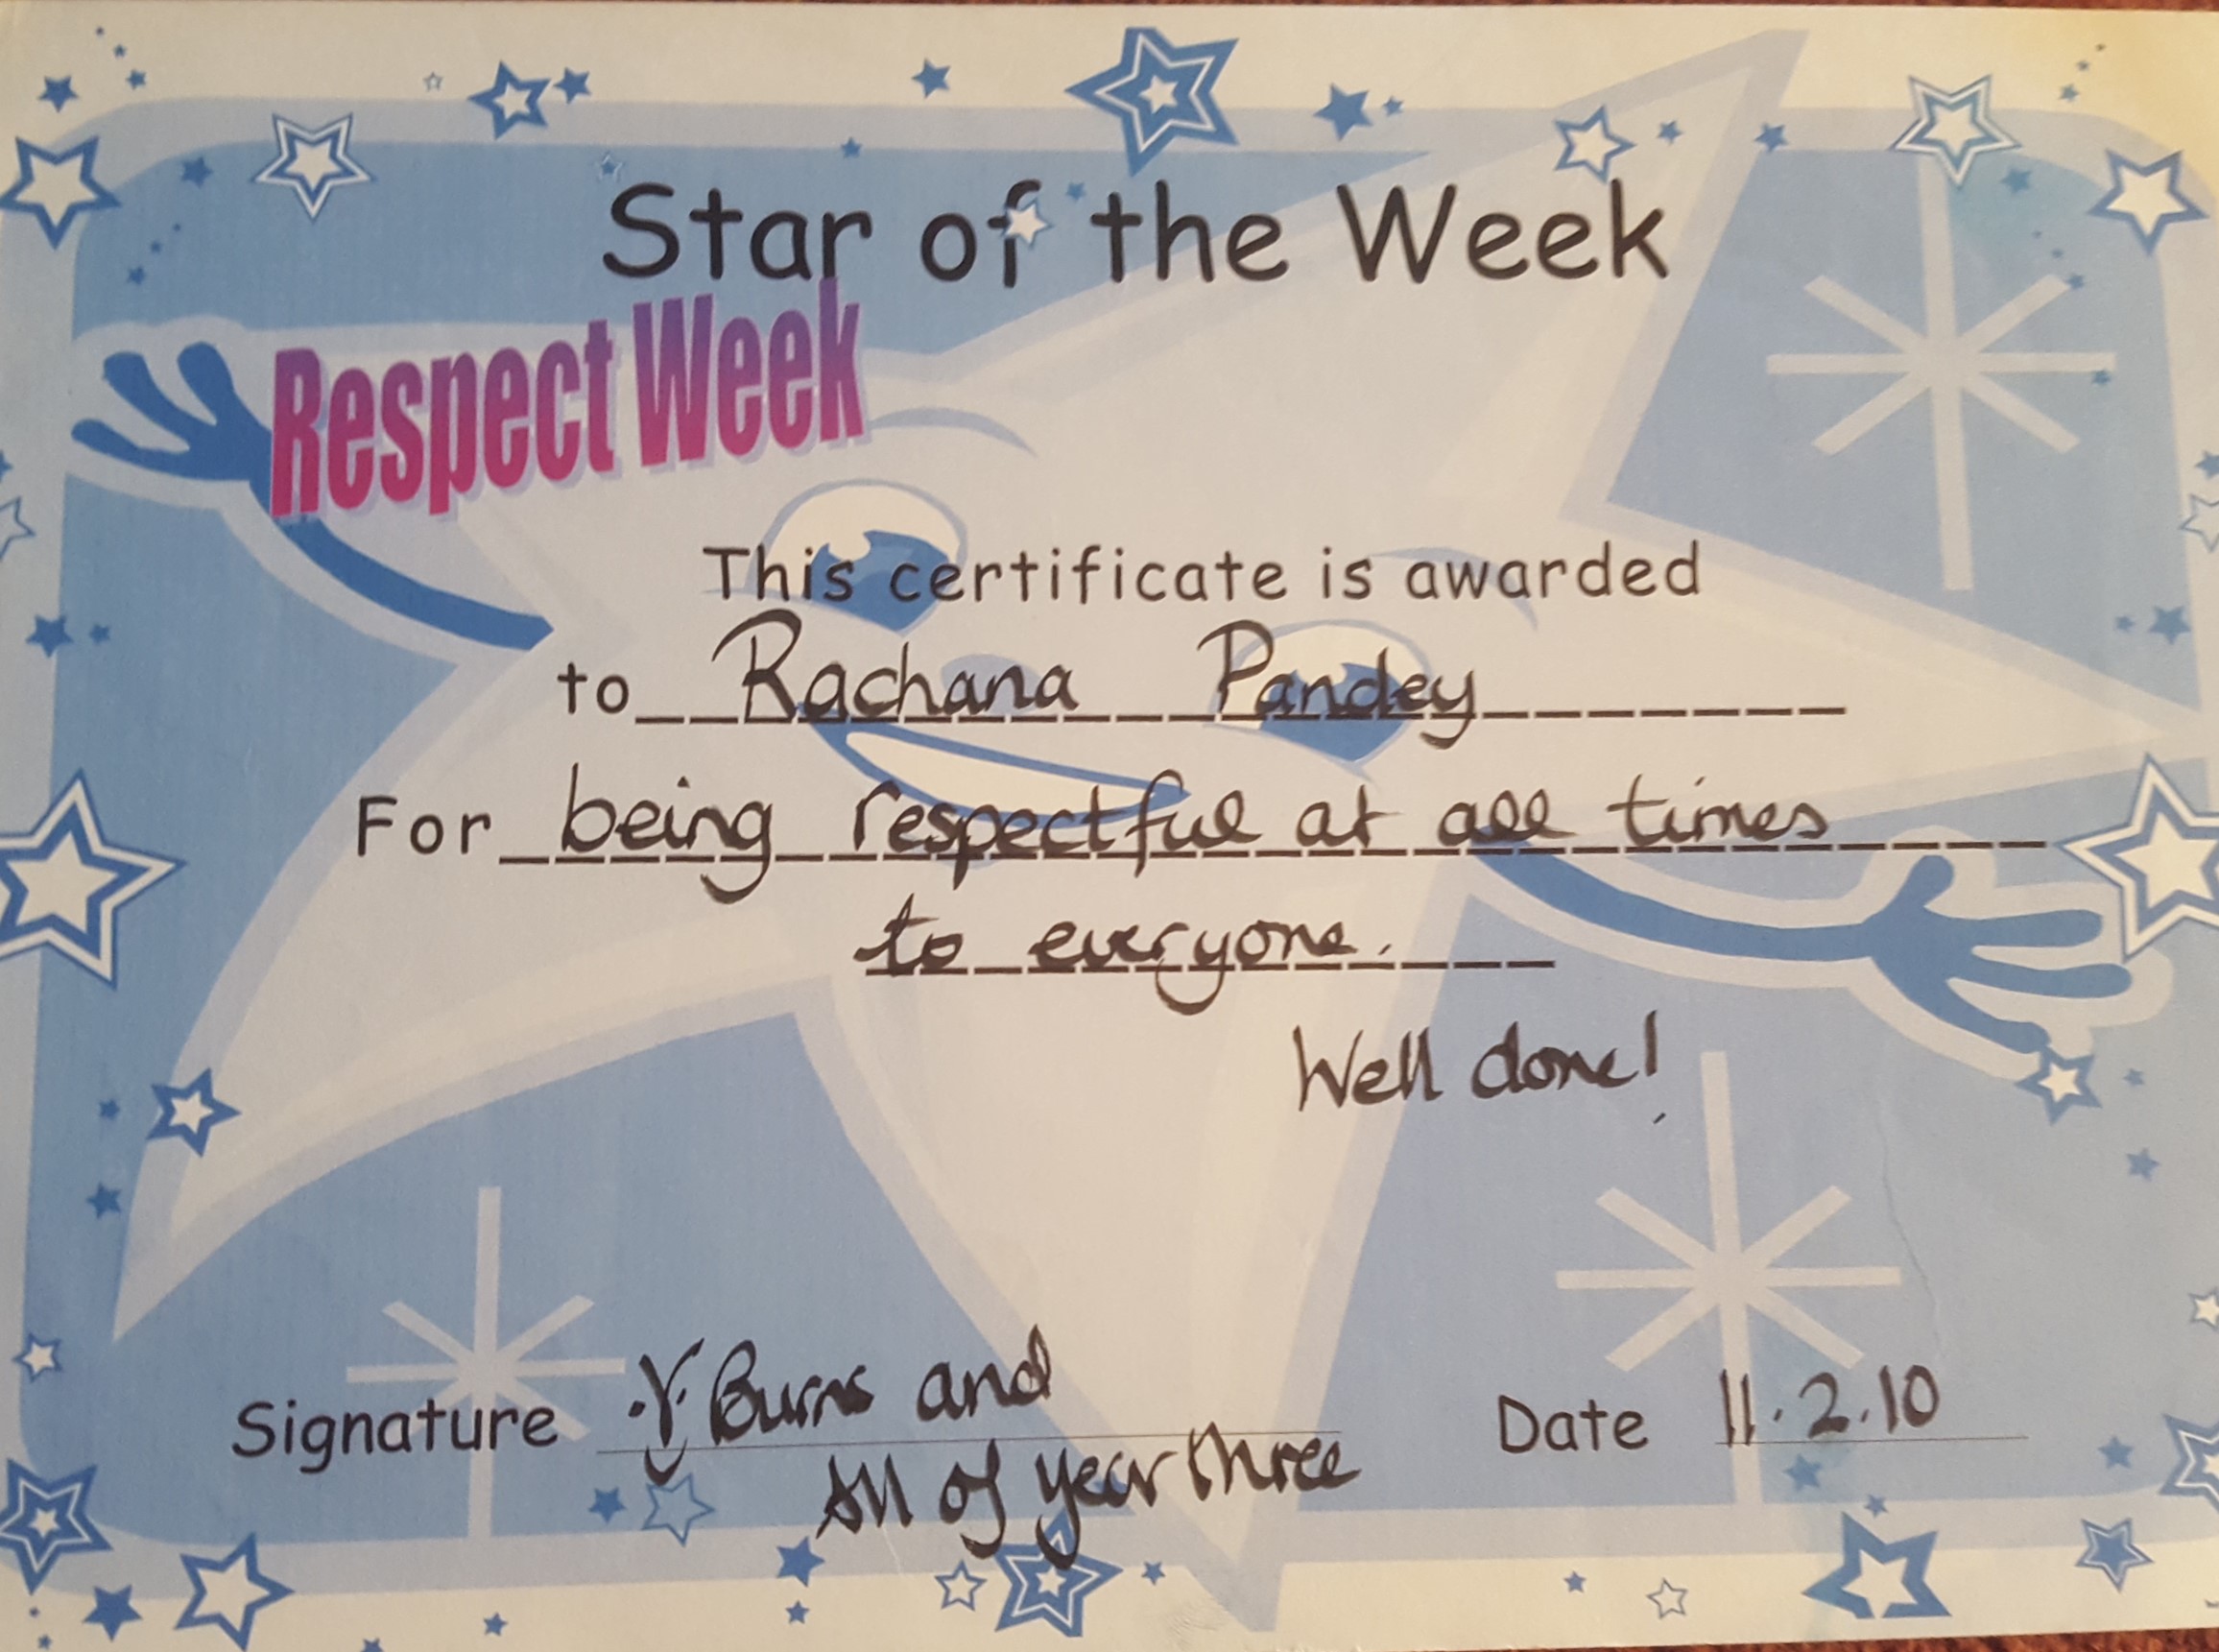 Star of the Week
Respect Week
This certificate is awarded
to Rachana Pandey
For being respectful at all times
to everyone.
Well done!
Signature Y. Burns and
All of year three
Date 11.2.10